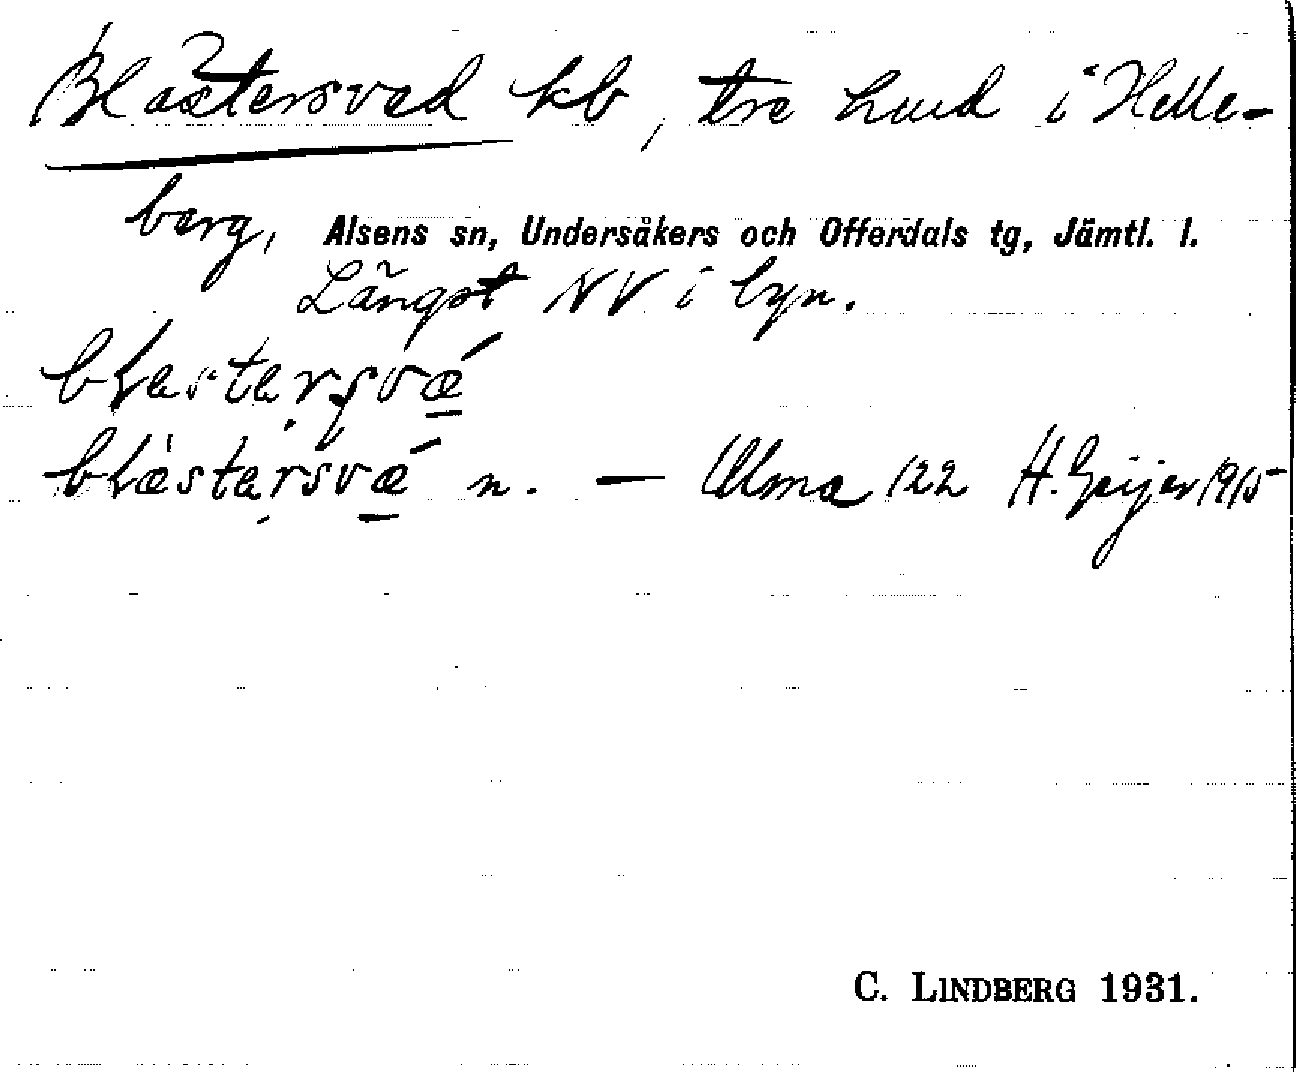 Blästersved kb, tre hus i Helle-
berg, Alsens sn, Undersåkers och Offerdals tg, Jämtl. l.
Längst NV i byn.
n. — Ulma 122 H. Geijer 1915
C. LINDBERG 1931.